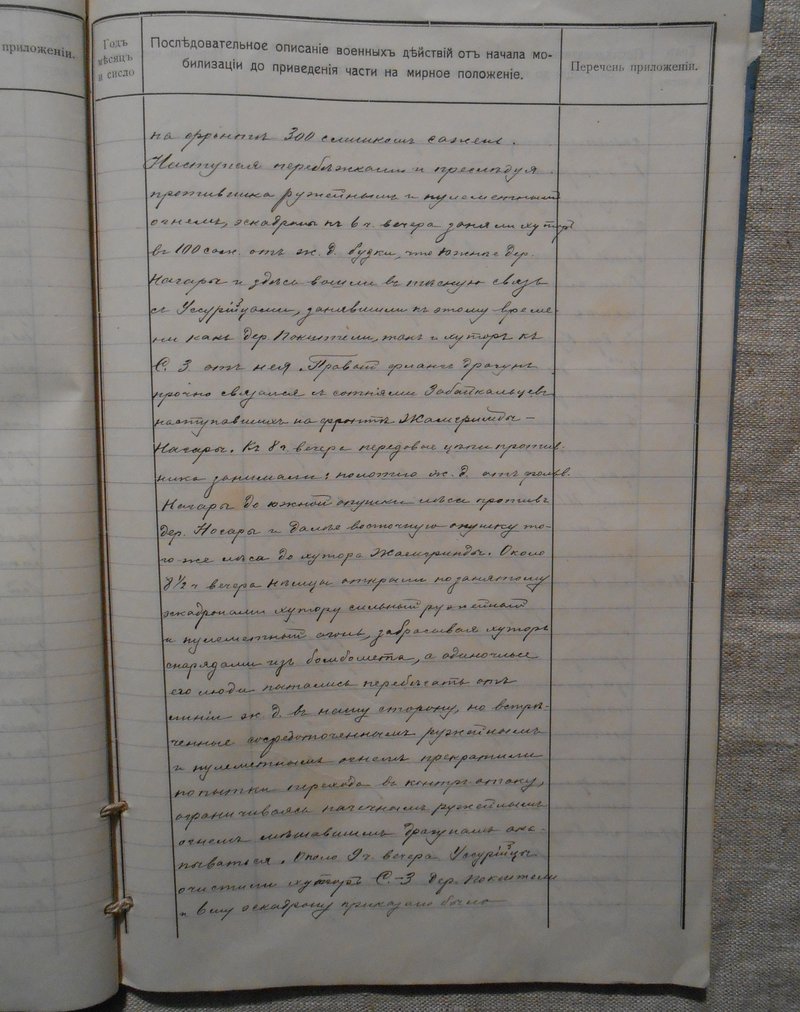 приложенія.
Годъ
мѣсяцъ
и сисло
Послѣдовательное описаніе военныхъ дѣйствій отъ начала мо-
билизаціи до приведенія части на мирное положеніе.
Перечень приложеній.
на фронтѣ 300 слишкомъ сажень.
Наступая перебѣжками и преслѣдуя
противника ружейнымъ и пулеметнымъ
огнемъ, эскадроны къ 6 ч. вечера заняли хуторъ
въ 100 саж. отъ ж. д. будки, что южнѣе дер.
Нагары и здѣсь вошли въ тѣсную связь
съ Уссурійцами, занявшими къ этому време-
ни какъ дер. Покштели, такъ и хуторъ къ
С. З. отъ нея. Правый флангъ драгунъ
прочно связался съ сотнями Забайкальцевъ
наступавшихъ на фронтѣ
Нагары. Къ 8 ч. вечера передовыя цѣпи против-
ника занимали: полотно ж. д. отъ фольв.
Нагары до южной опушки лѣса противъ
дер. Носары и далѣе восточную опушку то-
го-же лѣса до хутора Около
8 ½ ч вечера нѣмцы открыли по занятому
эскадронами хутору сильный ружейный
и пулеметный огонь, забрасывая хуторъ
снарядами изъ бомбомета, а одиночные
его люди пытались перебѣжать отъ
линіи ж. д. въ нашу сторону, но встрѣ-
ченные сосредоточеннымъ ружейнымъ
и пулеметнымъ огнемъ прекратили
попытки перехода въ контръ-атаку,
ограничиваясь пачечнымъ ружейнымъ
огнемъ мѣшавшимъ драгунамъ ока-
пываться. Около 9 ч. вечера Уссурійцы
очистили хуторъ С.-З дер. Покштели
и 6му эскадрону приказано было